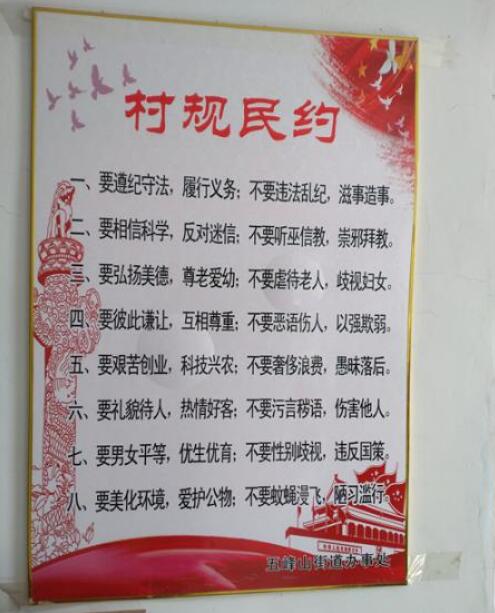 村规民约
一、要遵纪守法，履行义务；不要违法乱纪，滋事造事。
二、要相信科学，反对迷信；不要听巫信教，崇邪拜教。
三、要弘扬美德，尊老爱幼；不要虐待老人，歧视妇女。
四、要彼此谦让，互相尊重；不要恶语伤人，以强欺弱。
五、要艰苦创业，科技兴农；不要奢侈浪费，愚昧落后。
六、要礼貌待人，热情好客；不要污言秽语，伤害他人。
七、要男女平等，优生优育；不要性别歧视，违反国策。
八、要美化环境，爱护公物；不要蚊蝇漫飞，陋习滥行。
五峰山街道办事处